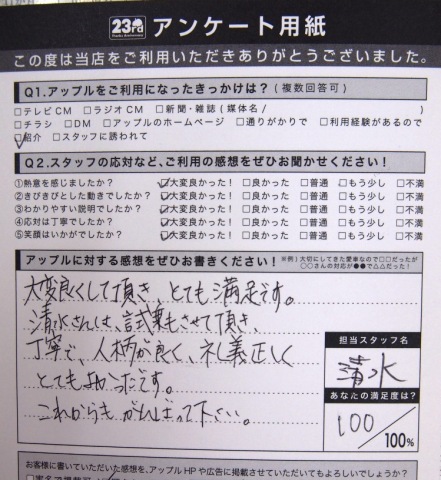 23rd アンケート用紙
この度は当店をご利用いただきありがとうございました。
Q1.アップルをご利用になったきっかけは?(複数回答可)
□テレビCM □ラジオCM □新聞・雑誌(媒体名/ )
□チラシ □DM □アップルのホームページ □通りがかりで □利用経験があるので
☑紹介 □スタッフに誘われて
Q2.スタッフの応対など、ご利用の感想をぜひお聞かせください!
①熱意を感じましたか? ☑大変良かった! □良かった □普通 □もう少し □不満
②きびきびとした動きでしたか? ☑大変良かった! □良かった □普通 □もう少し □不満
③わかりやすい説明でしたか? ☑大変良かった! □良かった □普通 □もう少し □不満
④応対は丁寧でしたか? ☑大変良かった! □良かった □普通 □もう少し □不満
⑤笑顔はいかがでしたか? ☑大変良かった! □良かった □普通 □もう少し □不満
アップルに対する感想をぜひお書きください!
※例)大切にしてきた愛車なので□□だったが
○○さんの対応が●●で△△だった!
大変良くして頂き、とても満足です。
清水さんは、試乗もさせて頂き、
丁寧で、人柄が良く、礼義正しく
とてもよかったです。
これからもがんばって下さい。
担当スタッフ名
清水
あなたの満足度は?
100/100%
お客様に書いていただいた感想を、アップルHPや広告に掲載させていただいてもよろしいでしょうか?